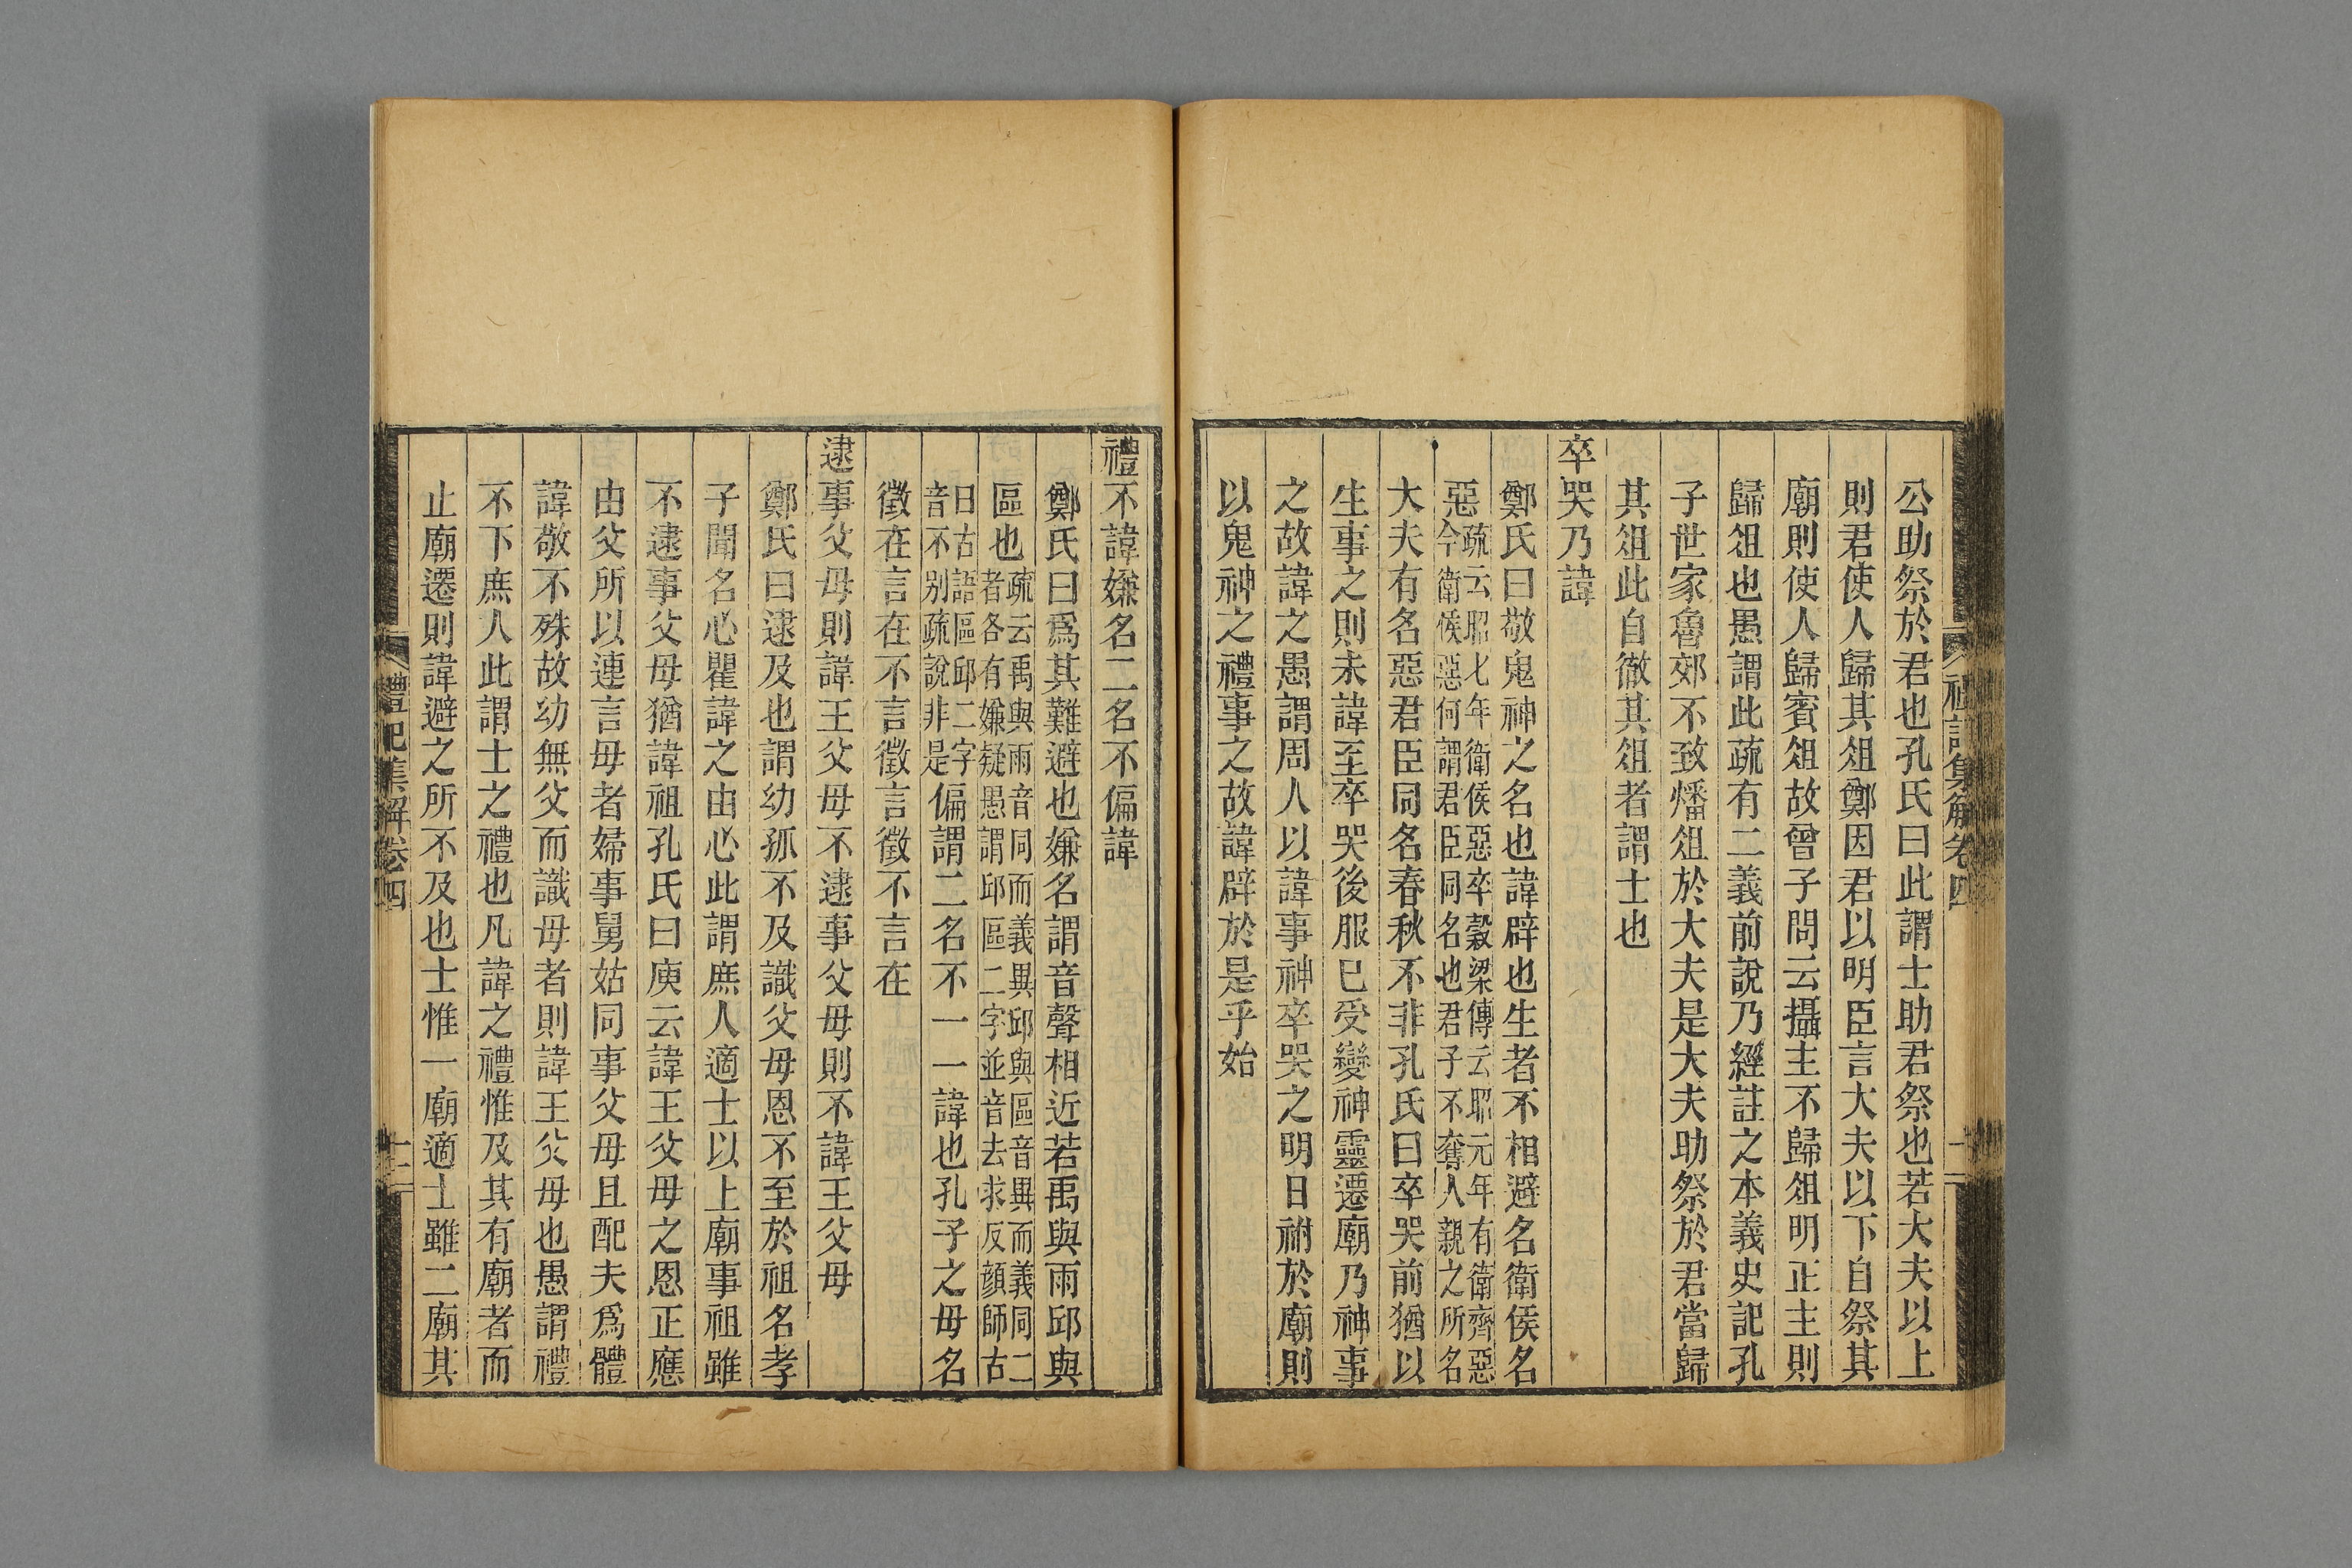 公助祭於君也孔氏曰此謂士助君祭也若大夫以上
則君使人歸其俎鄭因君以明臣言大夫以下自祭其
廟則使人歸賓俎故曾子問云攝主不歸俎明正主則
歸俎也愚謂此疏有二義前說乃經註之本義史記孔
子世家魯郊不致燔俎於大夫是大夫助祭於君當歸
其俎此自徹其俎者謂士也
卒哭乃諱
鄭氏曰敬鬼神之名也諱辟也生者不相避名衛侯名
惡疏云昭七年衛侯惡卒穀梁傳云昭元年有衛齊惡
今衛侯惡何謂君臣同名也君子不奪人親之所名
大夫有名惡君臣同名春秋不非孔氏曰卒哭前猶以
生事之則未諱至卒哭後服已受變神靈遷廟乃神事
之故諱之愚謂周人以諱事神卒哭之明日祔於廟則
以鬼神之禮事之故諱辟於是乎始
禮不諱嫌名二名不偏諱
鄭氏曰爲其難避也嫌名謂音聲相近若禹與雨邱與
區也疏云禹與雨音同而義異邱與區音異而義同二
者各有嫌疑愚謂邱區二字並音去求反顔師古
曰古語區邱二字
音不別疏說非是偏謂二名不一一諱也孔子之母名
徵在言在不言徵言徵不言在
逮事父母則諱王父母不逮事父母則不諱王父母
鄭氏曰逮及也謂幼孤不及識父母恩不至於祖名孝
子聞名心瞿諱之由心此謂庶人適士以上廟事祖雖
不逮事父母猶諱祖孔氏曰庾云諱王父母之恩正應
由父所以連言母者婦事舅姑同事父母且配夫爲體
諱敬不殊故幼無父而識母者則諱王父母也愚謂禮
不下庶人此謂士之禮也凡諱之禮惟及其有廟者而
止廟遷則諱避之所不及也士惟一廟適士雖二廟其
禮記集解卷四
十二